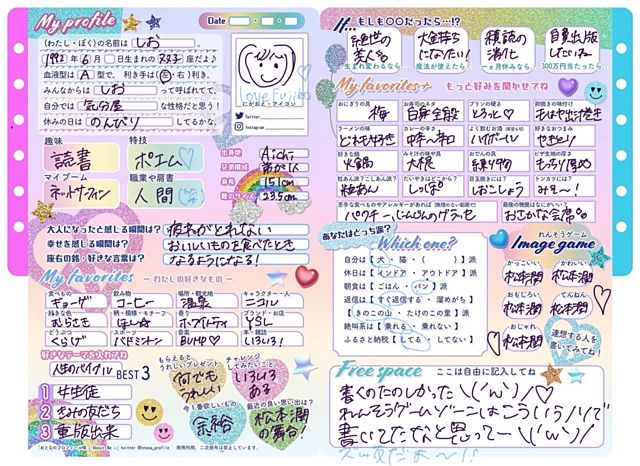 My profile
Date
(わたし・ぼく)の名前は しお 、
1992年 6月 日生まれの ふたご座だよ♪
血液型は A型で、利き手は(左・右)利き。
みんなからは しお って呼ばれてて、
自分では 気分屋 な性格だと思う!
休みの日は のんびり してるかな。
にがおえ・アイコン
Love Fujiko
Twitter
Instagram
趣味
読書
特技
ポエム♡
マイブーム
ネットサーフィン
職業や肩書
人間
出身地
Aichi
兄弟構成
身長
151cm
靴のサイズ
23.5cm
大人になったと感じる瞬間は?
疲れがとれない
幸せを感じる瞬間は?
おいしいものを食べたとき
座右の銘・好きな言葉は?
なるようになる!
My favorites ーわたしの好きなものー
食べもの
ギョーザ
飲みもの
コーヒー
場所・観光地
温泉
キャラクター・人
ニコル
好きな色
むらさき
柄・模様・モチーフ
ほし☆
香り
ホワイトティ
ブランド・お店
YSL
どうぶつ
くらげ
スポーツ
バドミントン
音楽
BUMP♡
本・雑誌
いろいろ!
好きなテーマを入れてね
人生のバイブル BEST3
1 女生徒
2 きみの友だち
3 重版出来
もらえると うれしいプレゼント
何でも うれしい
チャレンジ してみたいこと
いろいろ ある
今1番欲しいもの
余裕
最近の良い思い出は?
松本潤 の舞台!
もしも〇〇だったら…!?
絶世の 美人
生まれ変わるなら…
大金持ち になりたい!
魔法が使えたら…
積読の 消化
一ヵ月休みなら…
自費出版 したいね
300万円当たったら…
My favorites+ もっと好みを聞かせてね
おにぎりの具
梅
お寿司のネタ
白身全般
プリンの硬さ
とろっと!
卵焼きの味付け
もはや出汁巻き
ラーメンの味
どれもやさしい
カレーの辛さ
中辛〜和
よく飲むお酒
ハイボール
好きなおつまみ
やきとり
好きな鍋
水鍋
みそ汁の味や具
大根
おでんの具
練り物
ピザ生地の厚さ
もっちり厚め
粒あん?こしあん?派
粒あん
たいやきはどこから?
しっぽ
目玉焼きには?
しおこしょう
トンカツには?
みそ〜!
苦手な食べものやアレルギーがあれば
パクチー・にんじんのグラッセ
最後の晩餐はなにがいい?
おごかな会席
あなたはどっち派?
Which one?
自分は【犬・猫・( )】派
休日は【インドア・アウトドア】派
朝食は【ごはん・パン】派
返信は【すぐ返信する・溜めがち】
【きのこの山・たけのこの里】派
絶叫系は【乗れる・乗れない】
ふるさと納税【してる・してない】
れんそうゲーム
Image game
かっこいい
松本潤
かわいい
松本潤
おもしろい
松本潤
てんねん
松本潤
おしゃれ
松本潤
連想する人を 書いてみてね!
Free space ここは自由に記入してね
書くのたのしかった\('ω')/♡
れんそうゲームゾーンはこういうノリで
書いてたなと思って〜\('ω')/